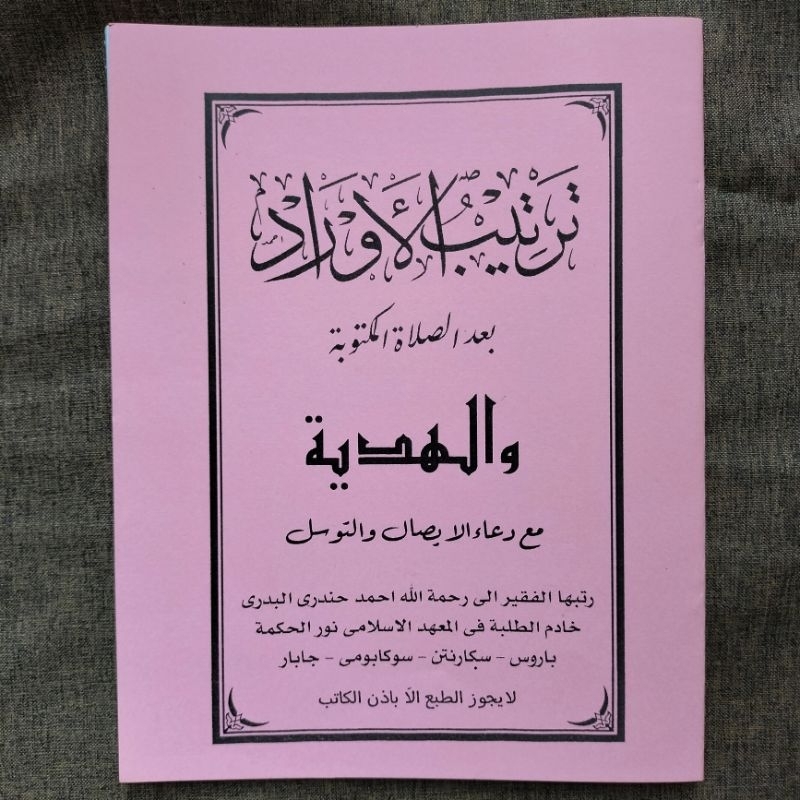 تَرَتِيبُ الأَوْرَادِ
بعد الصلاة المكتوبة
والهدية
مع دعاء الايصال والتوسل
رتبها الفقير الى رحمة الله احمد حندرى البدرى
خادم الطلبة فى المعهد الاسلامى نور الحكمة
باروس - سكارنتن - سوكابومى - جابار
لا يجوز الطبع الا باذن الكاتب